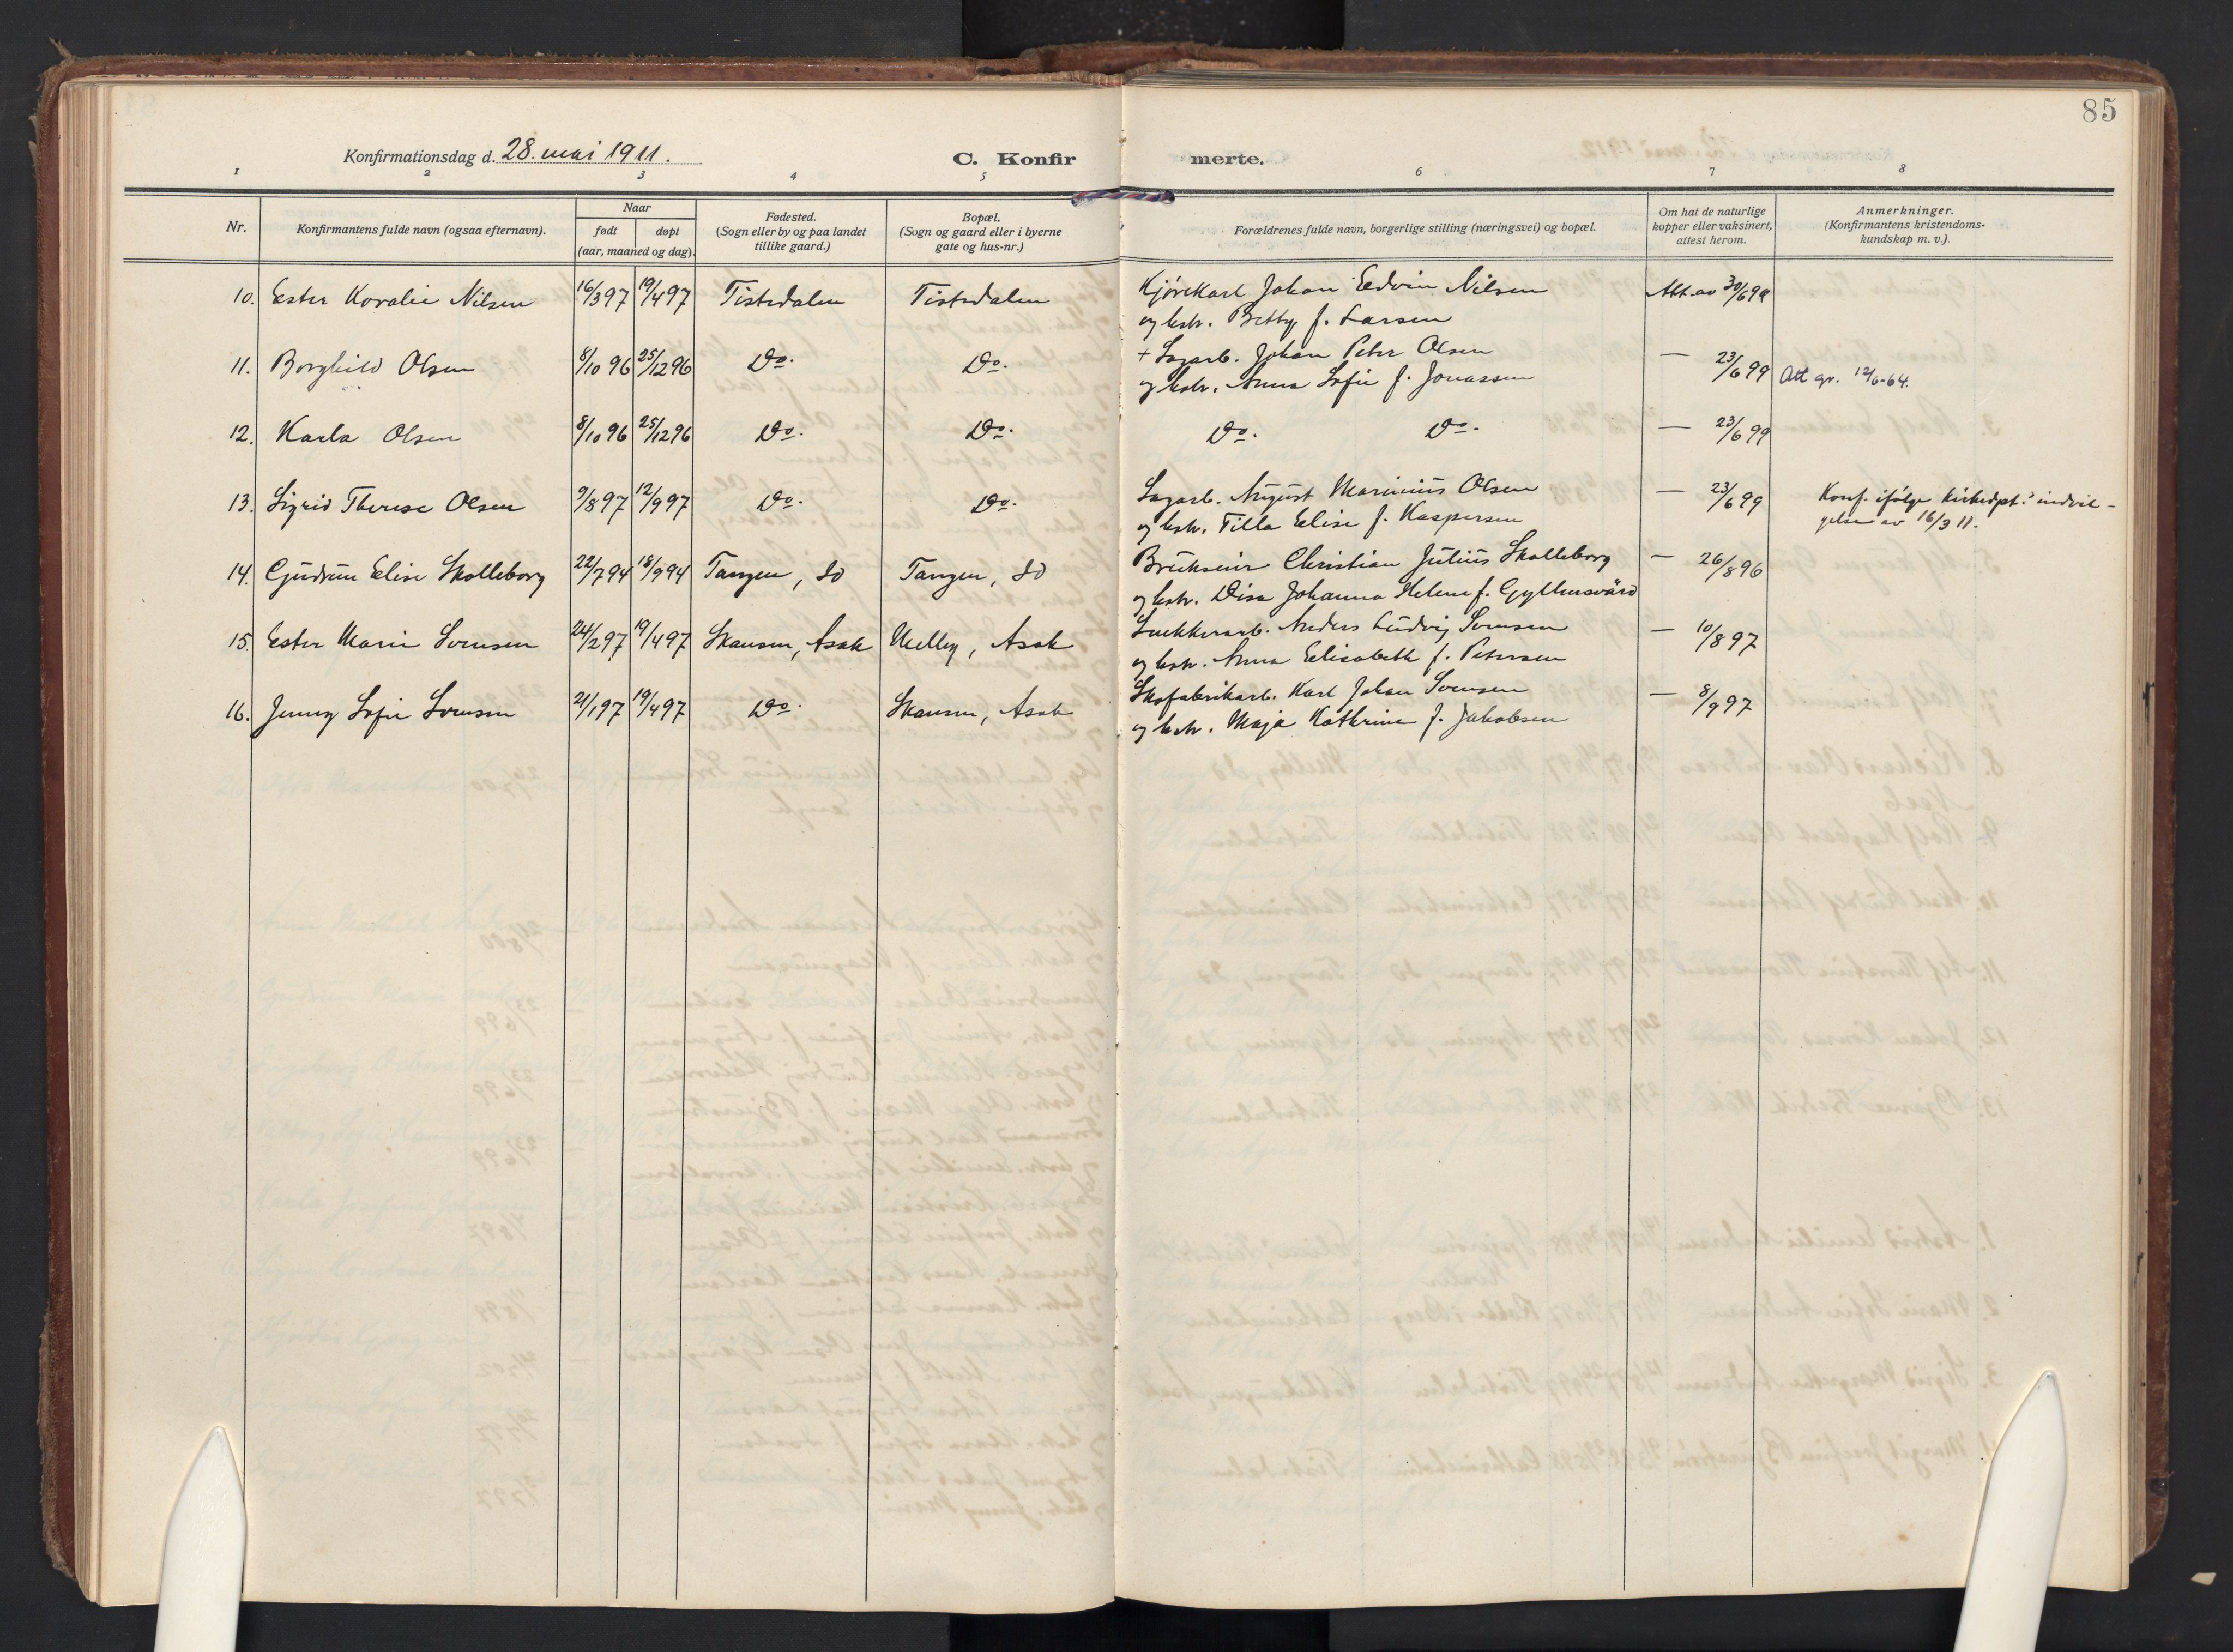 85
Konfirmationsdag d. 28. mai 1911.
C. Konfirmerte.
1 2 3 4 5 6 7 8
Nr.
Konfirmantens fulde navn (ogsaa efternavn).
Naar
født døpt
(aar, maaned og dag).
Fødested.
(Sogn eller by og paa landet
tillike gaard.)
Bopæl.
(Sogn og gaard eller i byerne
gate og hus-nr.)
Forældrenes fulde navn, borgerlige stilling (næringsvei) og bopæl.
Om hat de naturlige
kopper eller vaksinert,
attest herom.
Anmerkninger.
(Konfirmantens kristendoms-
kundskap m. v.).
10. Ester Koralie Nilsen 16/3 97 19/4 97 Tistedalen Tistedalen Kjørekarl Johan Edvin Nilsen Att. av 30/6 98
og hstr. Betty f. Larsen
11. Borghild Olsen 8/10 96 25/12 96 Do. Do. + Sagarb. Johan Peter Olsen — 23/6 99 Att gr. 12/6-64.
og hstr. Anna Sofie f. Jonassen
12. Karla Olsen 8/10 96 25/12 96 Do. Do. Do. Do. — 23/6 99
13. Sigrid Therese Olsen 9/8 97 12/9 97 Do. Do. Sagarb. August Marinius Olsen — 23/6 99 Konf. ifølge kirkedpt.s indvil-
og hstr. Tilla Elise f. Kaspersen gelse av 16/3 11.
14. Gudrun Elise Skolleborg 22/7 94 18/9 94 Tangen, Id Tangen, Id Brukseier Christian Julius Skolleborg — 26/8 96
og hstr. Disa Johanna Helene f. Gyllensvärd
15. Ester Marie Sørensen 24/2 97 19/4 97 Skansen, Asak Melby, Asak Snekkerarb. Anders Ludvig Sørensen — 10/8 97
og hstr. Anna Elisabeth f. Petersen
16. Jenny Sofie Sørensen 21/1 97 19/4 97 Do. Skansen, Asak Skofabrikarb. Karl Johan Sørensen — 8/9 97
og hstr. Maja Kathrine f. Jakobsen